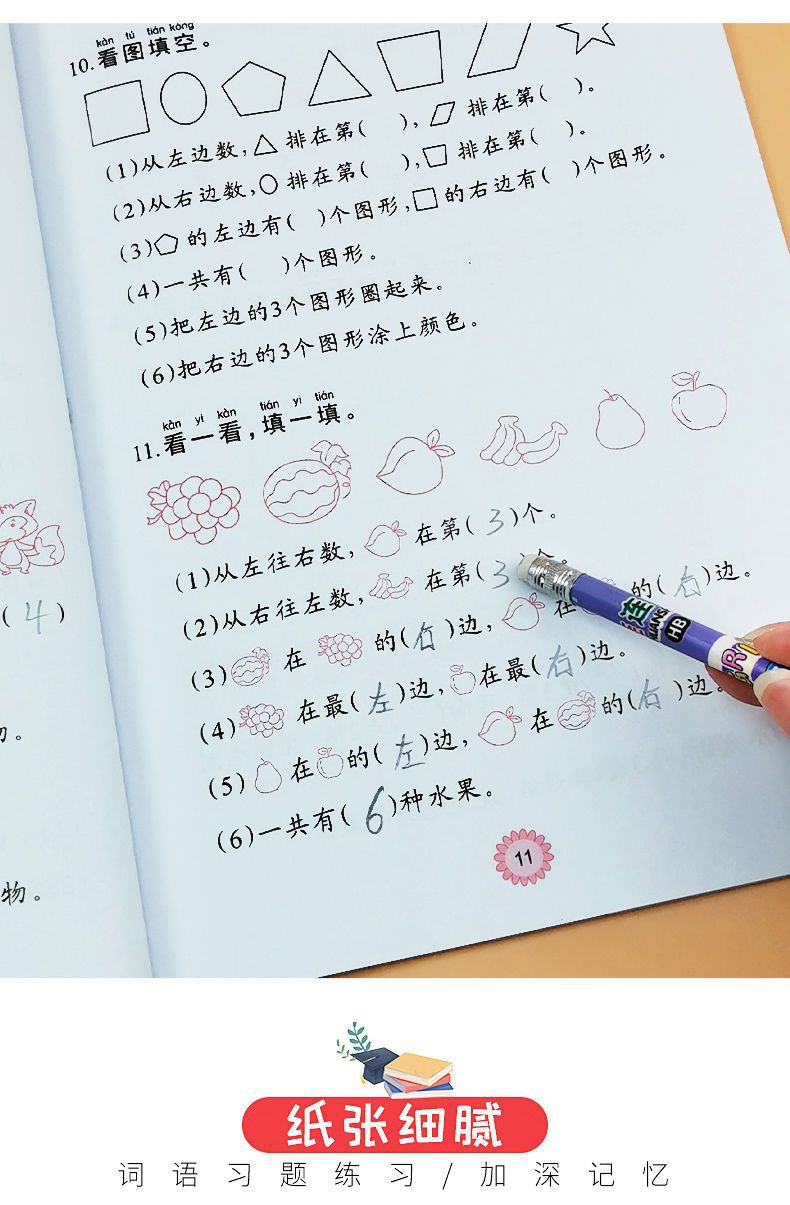 kàn tú tián kòng
10.看图填空。
(1)从左边数,△排在第(  ),▱排在第(  )。
(2)从右边数,○排在第(  ),排在第(  )。
(3)的左边有(  )个图形,□的右边有(  )个图形。
(4)一共有(  )个图形。
(5)把左边的3个图形圈起来。
(6)把右边的3个图形涂上颜色。
kàn yi kàn tián yi tián
11.看一看,填一填。
(1)从左往右数,在第(3)个。
(2)从右往左数,在第(3 个。
(3)在的(右)边,在的(右)边。
(4)在最(左)边,在最(右)边。
(5)在的(左)边,在的(右)边。
(6)一共有(6)种水果。
(4)
物。
11
HB
纸张细腻
词语习题练习/加深记忆